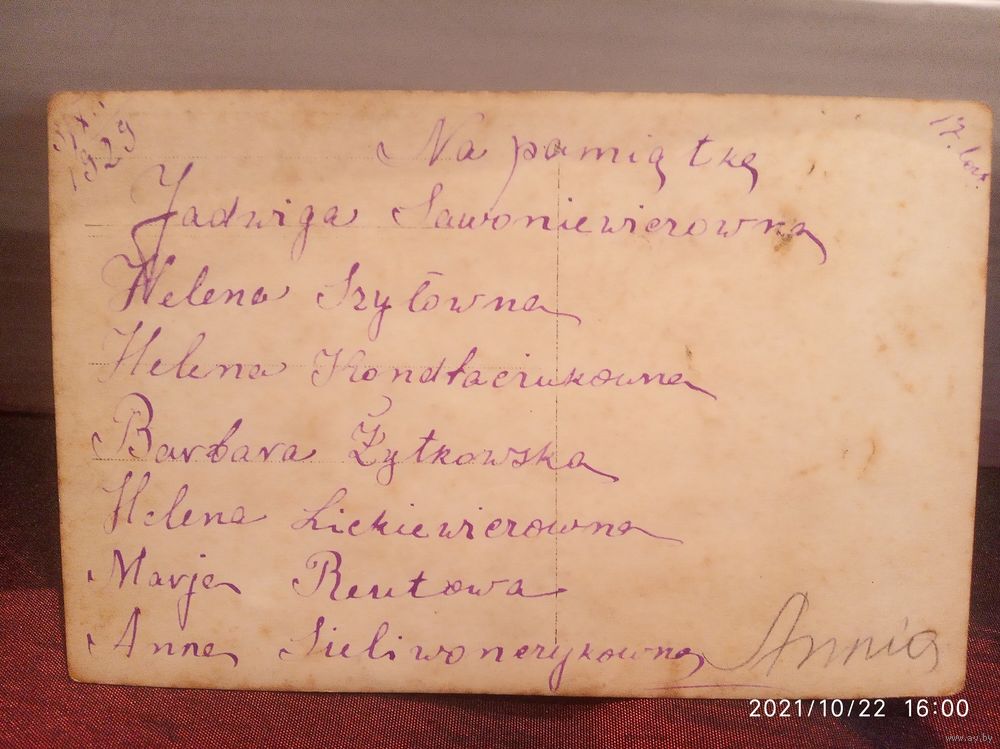 IX.
1929
17.
Na pamiątkę
Jadwiga Sawoniewiczowna
Helena Szyłówna
Helena Kondłaczukowna
Barbara Żytkowska
Helena Lickiewiczowna
Marja Reutowa
Anna Sieliwonczykowna
Annia
2021/10/22 16:00
www.ay.by